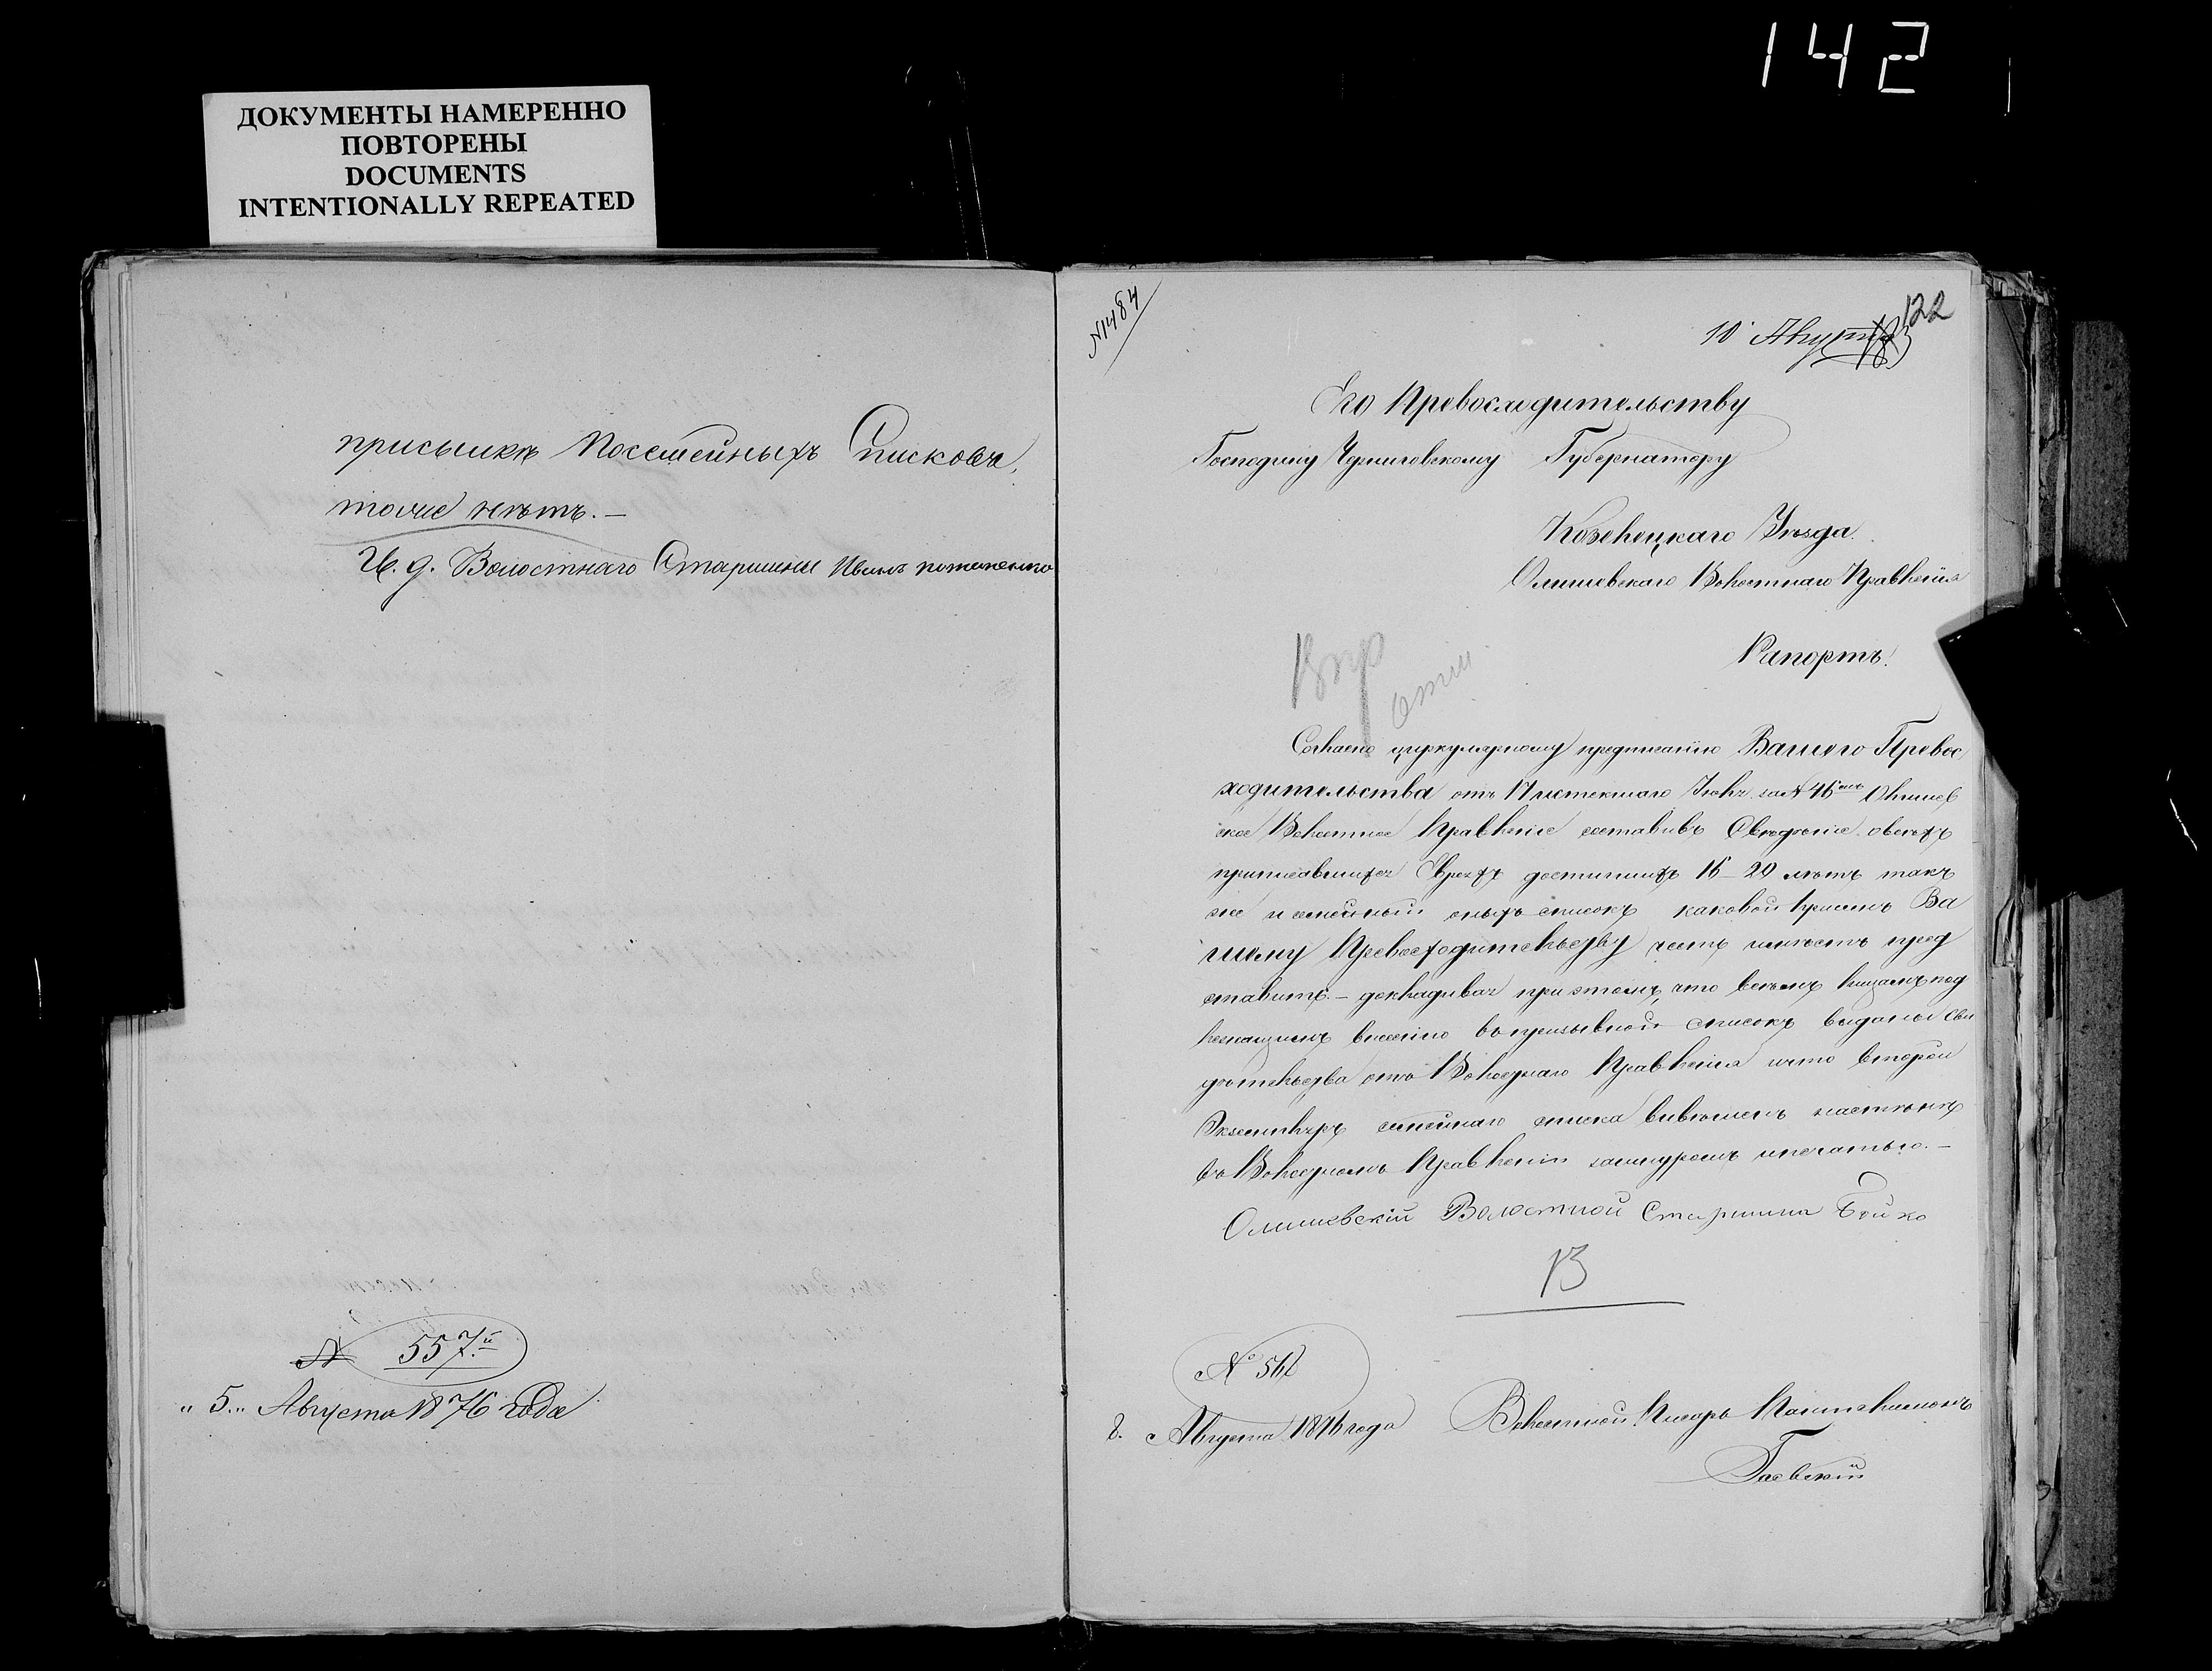 142
ДОКУМЕНТЫ НАМЕРЕННО
ПОВТОРЕНЫ
DOCUMENTS
INTENTIONALLY REPEATED
присылкѣ Посемейныхъ Списковъ,
тоже нѣтъ. —
И. д. Волостнаго Старшины Иванъ
№ 557й
„5„ Августа 1876 года
№1484
122
10 Августа
Его Превосходительству
Господину Черниговскому Губернатору
Козелецкаго Уѣзда
Олишевскаго Волостнаго Правленія
Рапортъ.
Согласно циркулярному предписанію Вашего Превос
ходительства отъ 17 истекшаго Іюля за № Олишев
ское Волостное Правленіе составивъ Свѣдѣніе о всѣхъ
приписавшихся Евреяхъ достигшихъ 16–20 лѣтъ так
же и семейный оныхъ списокъ каковой при семъ Ва
шему Превосходительству честь имѣетъ пред
ставить. – докладывая при этомъ, что всѣмъ лицамъ под
лежащимъ внесенію въ призывной списокъ выданы сви
дѣтельства отъ Волостнаго Правленія и что второй
Экземпляръ семейнаго списка вывѣшенъ на стѣнкѣ
въ Волостномъ Правленіи за шнуромъ и печатью. –
Олишевскій Волостной Старшина Бойко
В
8. Августа 1876 года
Волостной Писарь
Гаевскій